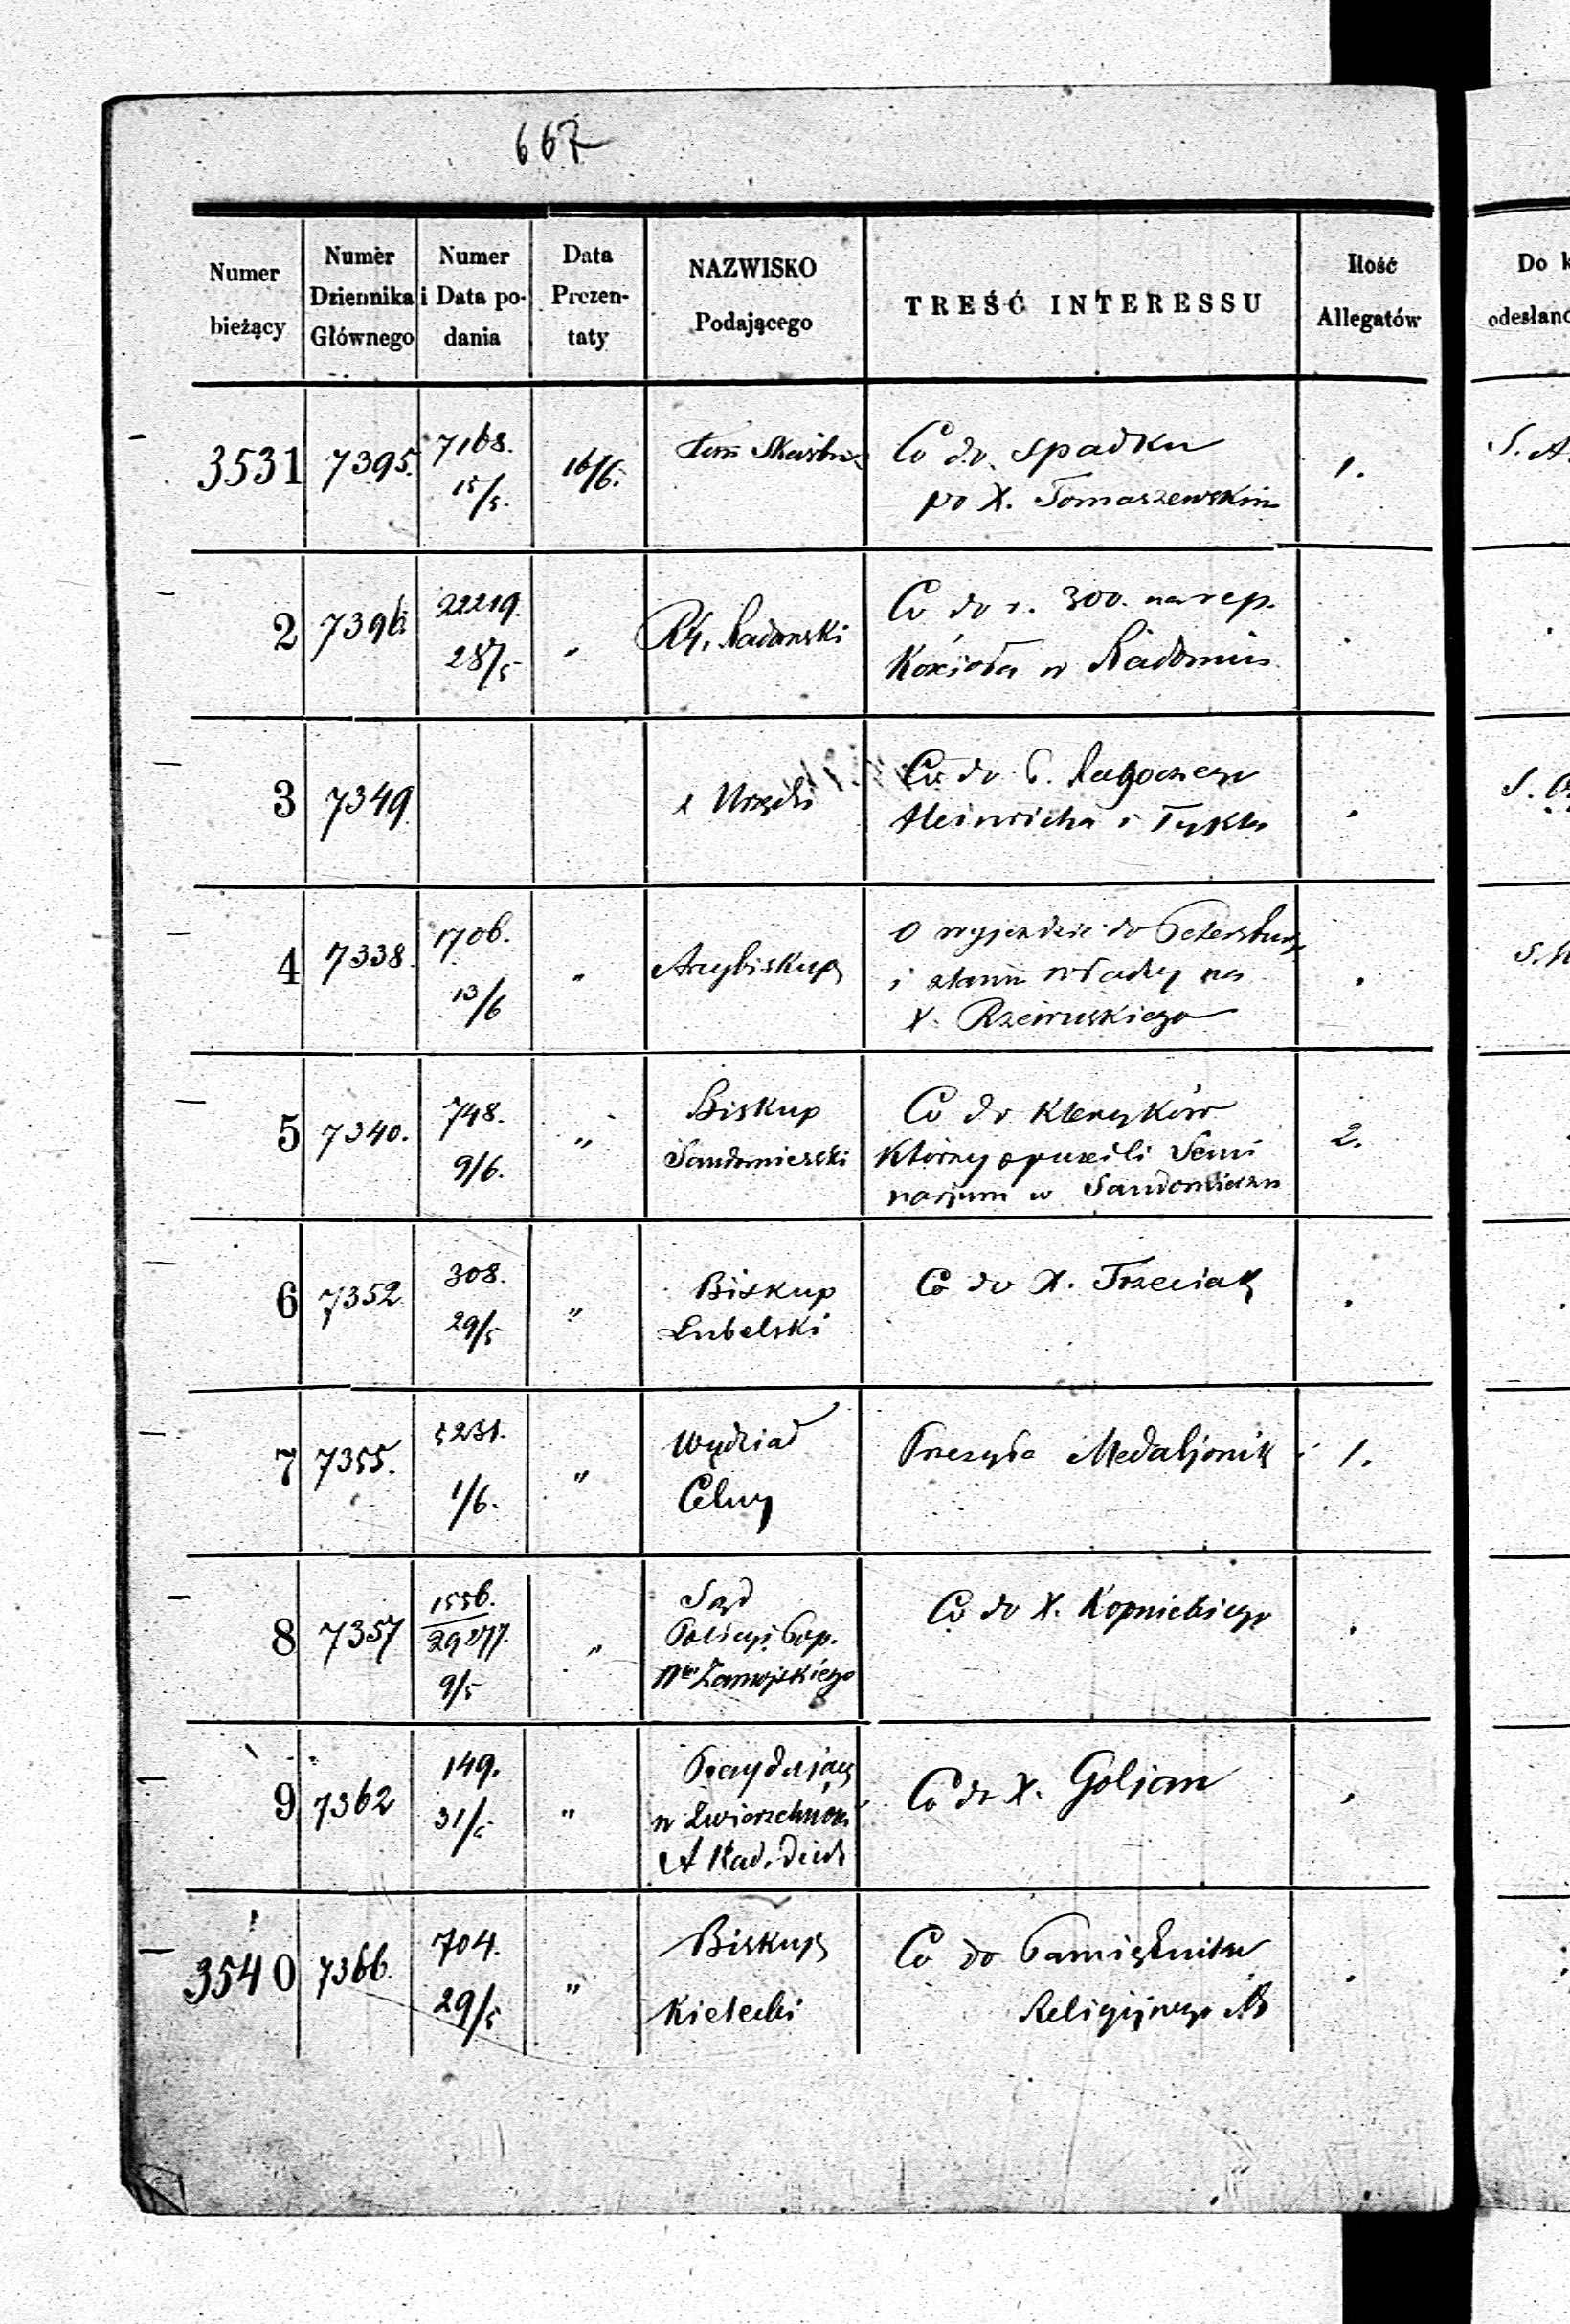 667
Numer bieżący
Numer Dziennika Głównego
Numer i Data po-dania
Data Prezen-taty
NAZWISKO Podającego
TREŚĆ INTERESSU
Ilość Allegatów
Do k
odesłano
3531 7395. 7168. 15/5. 16/6. Skarbu Co do spadku 1. S. A.
po X. Tomaszewskim
2 7396 22219. 28/5 " R. G. Radomski Co do r. 300. na rep.
Kościoła w Radomiu
3 7349 z Urzędu Co do
Heinricha i Tykla
4 7338. 1706. 13/6 " Arcybiskup O wyjeździe do Petersburga
i zlaniu władzy na
X. Rzewuskiego
5 7340. 748. 9/6. " Biskup Co do kleryków 2.
Sandomierski którzy opuścili Semi
narjum w Sandomierzu
6 7352 308. 29/5 " Biskup Co do X. Trzeciak
Lubelski
7 7355. 5231. 1/6. " Wydział Przesyła Medaljonik 1.
Celny
8 7357 1556. 29277. 9/5 " Sąd Co do X. Kopnickiego
Policyi Pop.
Zamojskiego
9 7362 149. 31/5 " Prezydujący Co do X. Goljan
w Zwierzchnośći
Akad. Duch
3540 7366. 704. 29/5 " Biskup Co do Pamiętnika
Kielecki Religijnego